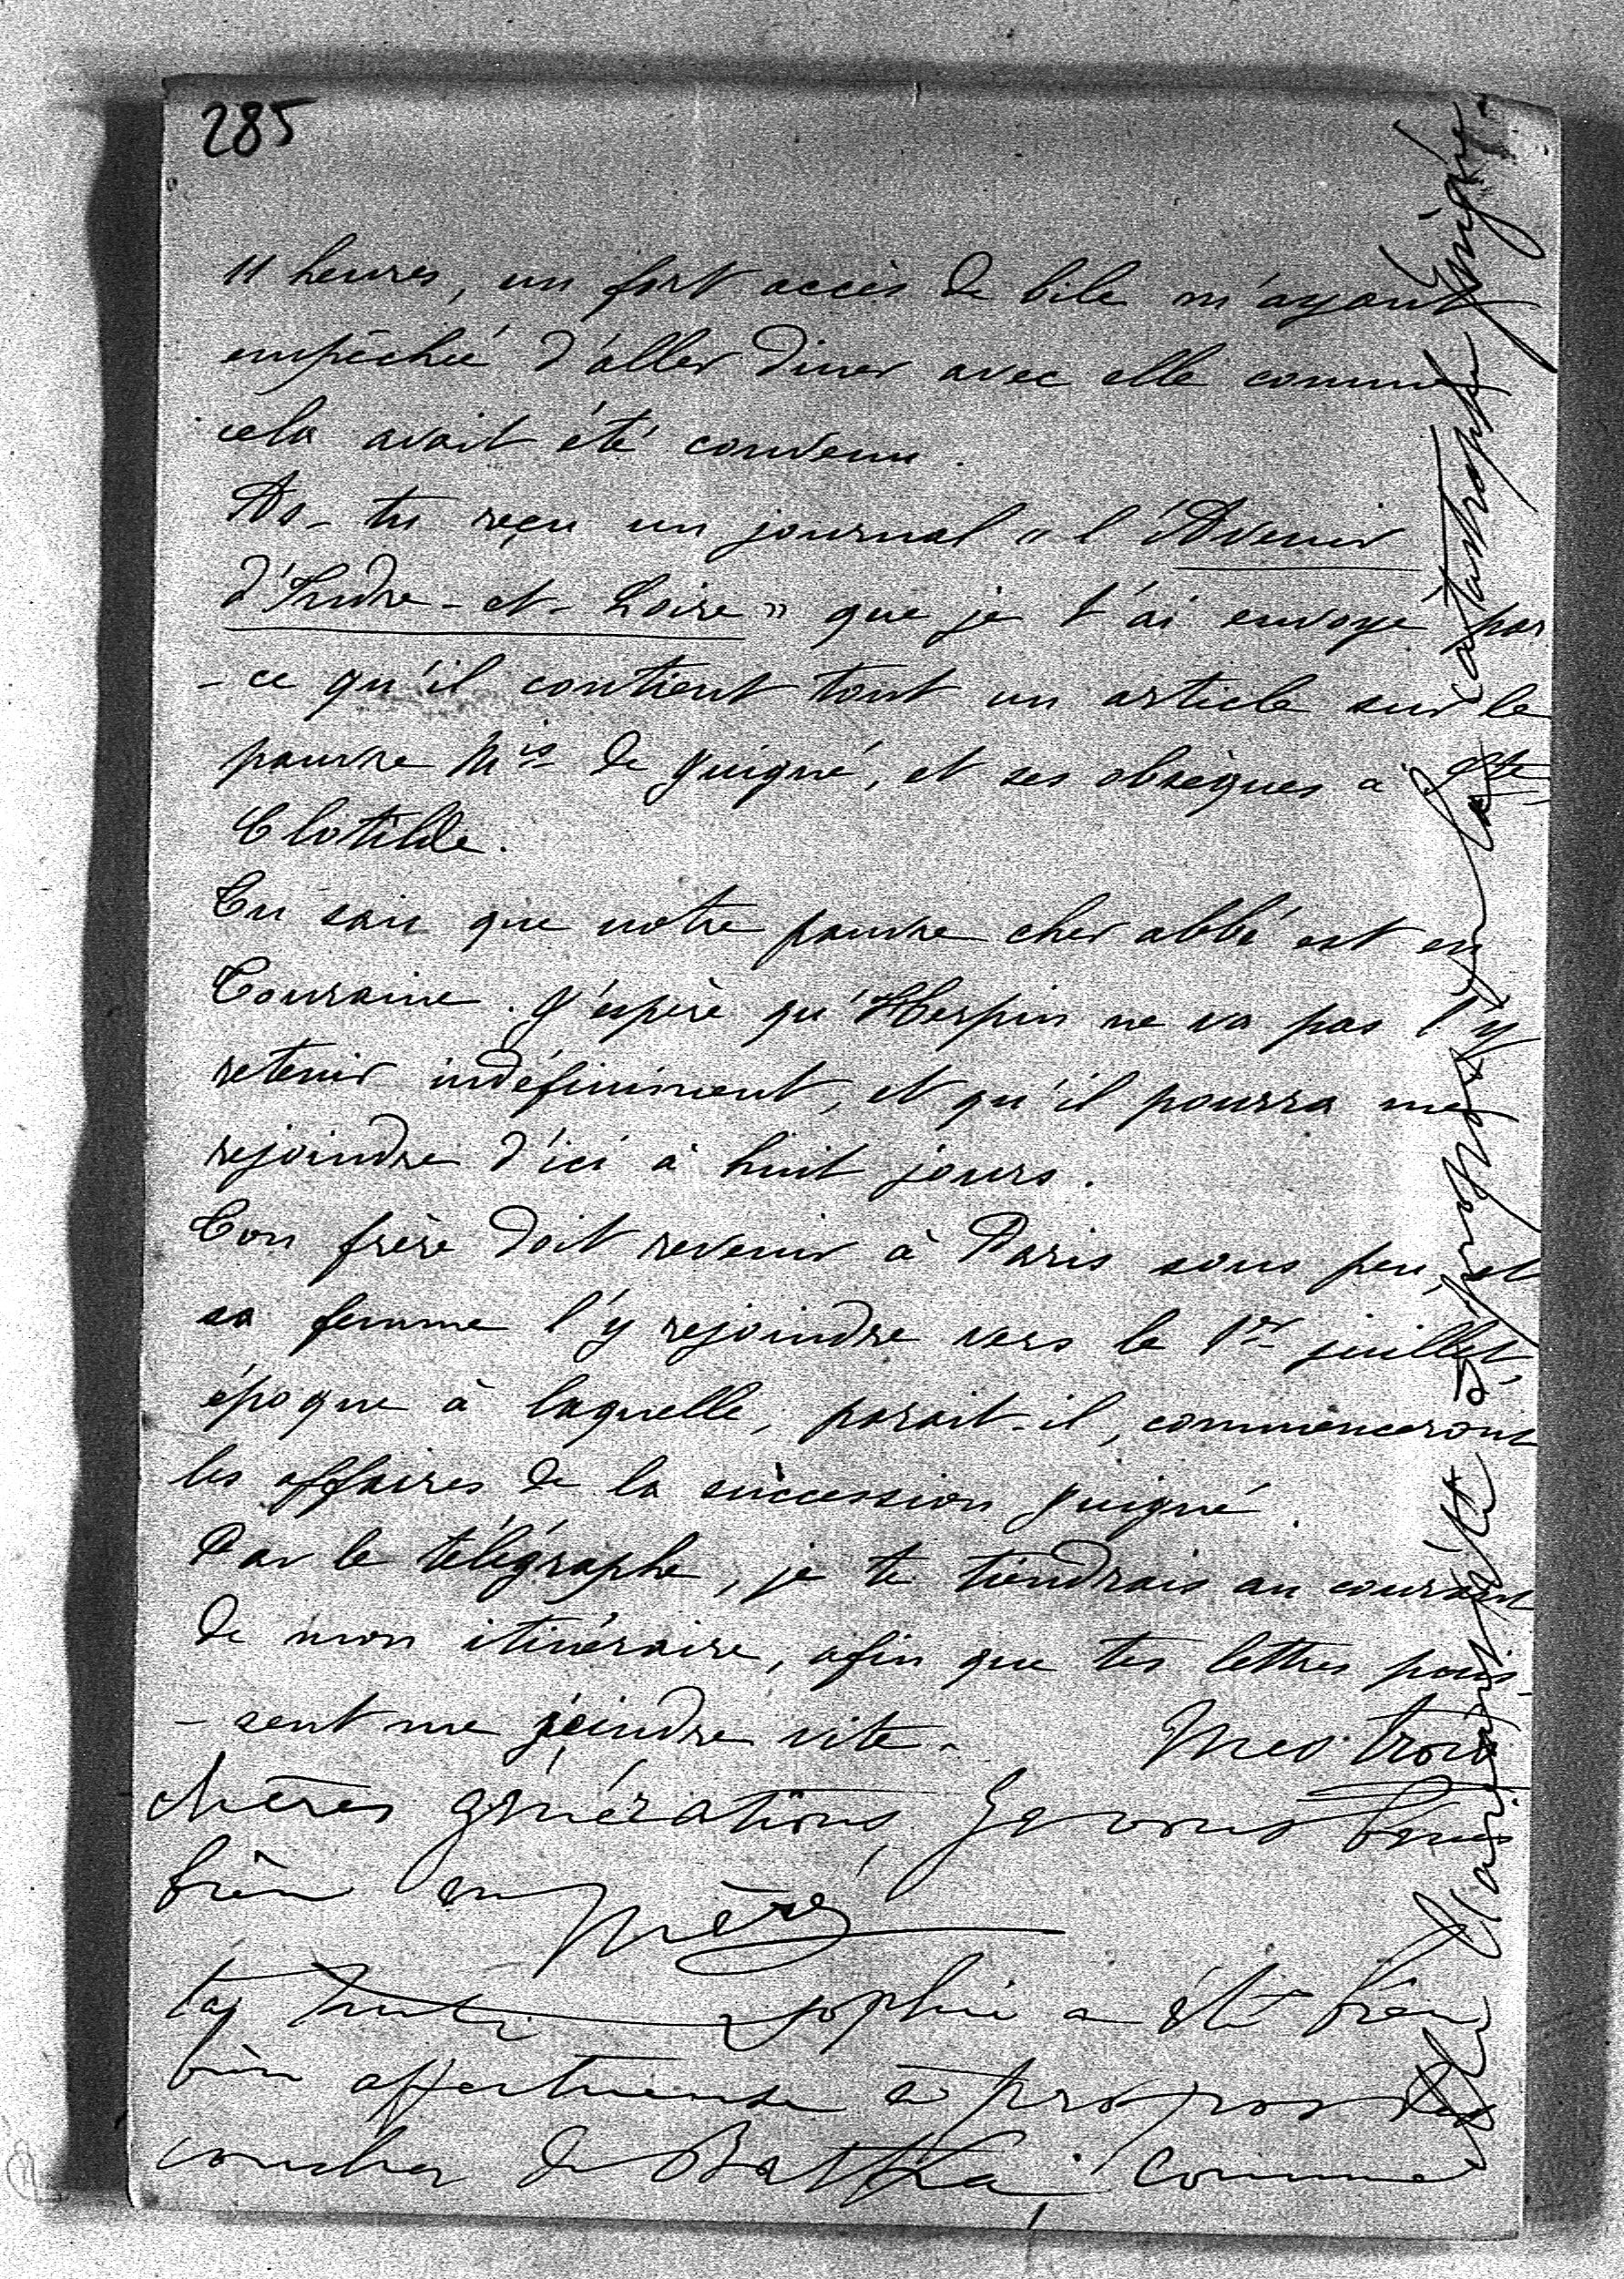 285
11 heures, un fort accès de bile m'ayant
empêchée d'aller diner avec elle comme
cela avait été convenu.
As-tu reçu un journal "l'Avenir
d'Indre-et-Loire" que je t'ai envoyé par
-ce qu'il contient tout un article sur le
pauvre Mis de Guigné, et ses obsèques à Ste
Clotilde.
Tu sais que notre pauvre cher abbé est en
Touraine. J'espère qu'Herpin ne va pas l'y
retenir indéfiniment, et qu'il pourra me
rejoindre d'ici à huit jours.
Ton frère doit revenir à Paris sous peu et
sa femme l'y rejoindre vers le 1er juillet,
époque à laquelle, parait-il, commenceront
les affaires de la succession Guigné.
Par le télégraphe, je te tiendrais au courant
de mon itinéraire, afin que tes lettres puis-
-sent me joindre vite. Mes trois
chères générations, Je vous bénis
bien Mère
ta tante Sophie a été bien
bien affectueuse à propos des
couches de Bertha, comme
elle l'avait été à propos de la catastrophe Guigné-